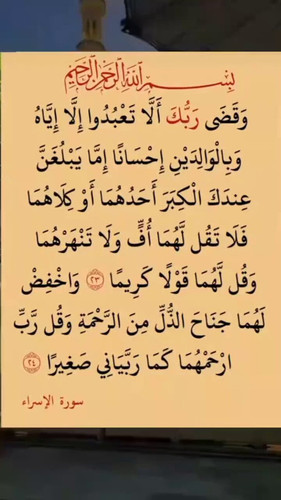 بِسْمِ ٱللَّهِ ٱلرَّحْمَٰنِ ٱلرَّحِيمِ
وَقَضَى رَبُّكَ أَلَّا تَعْبُدُوا إِلَّا إِيَّاهُ
وَبِالْوَالِدَيْنِ إِحْسَانًا إِمَّا يَبْلُغَنَّ
عِندَكَ الْكِبَرَ أَحَدُهُمَا أَوْ كِلَاهُمَا
فَلَا تَقُل لَّهُمَا أُفٍّ وَلَا تَنْهَرْهُمَا
وَقُل لَّهُمَا قَوْلًا كَرِيمًا ٢٣ وَاخْفِضْ
لَهُمَا جَنَاحَ الذُّلِّ مِنَ الرَّحْمَةِ وَقُل رَّبِّ
ارْحَمْهُمَا كَمَا رَبَّيَانِي صَغِيرًا ٢٤
سورة الإسراء